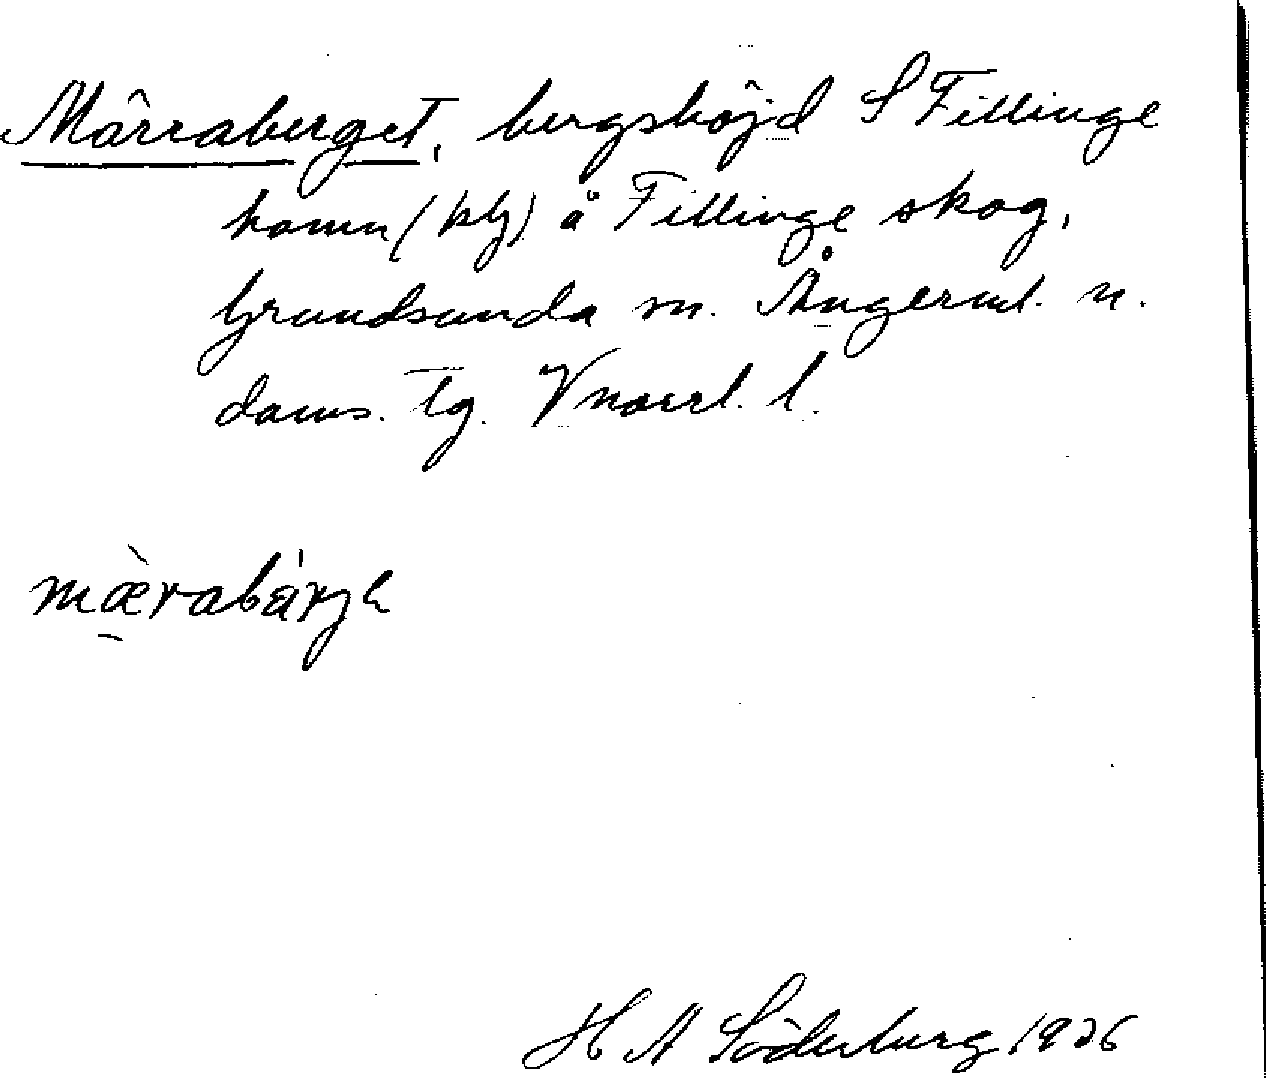 Märraberget, bergshöjd S Fillinge
hamn (blg) å Fillinge skog,
Grundsunda sn. Ångerml. n.
doms. tg. Vnorrl. l.
mæ̀rabárjɛ
H A Söderberg 1926